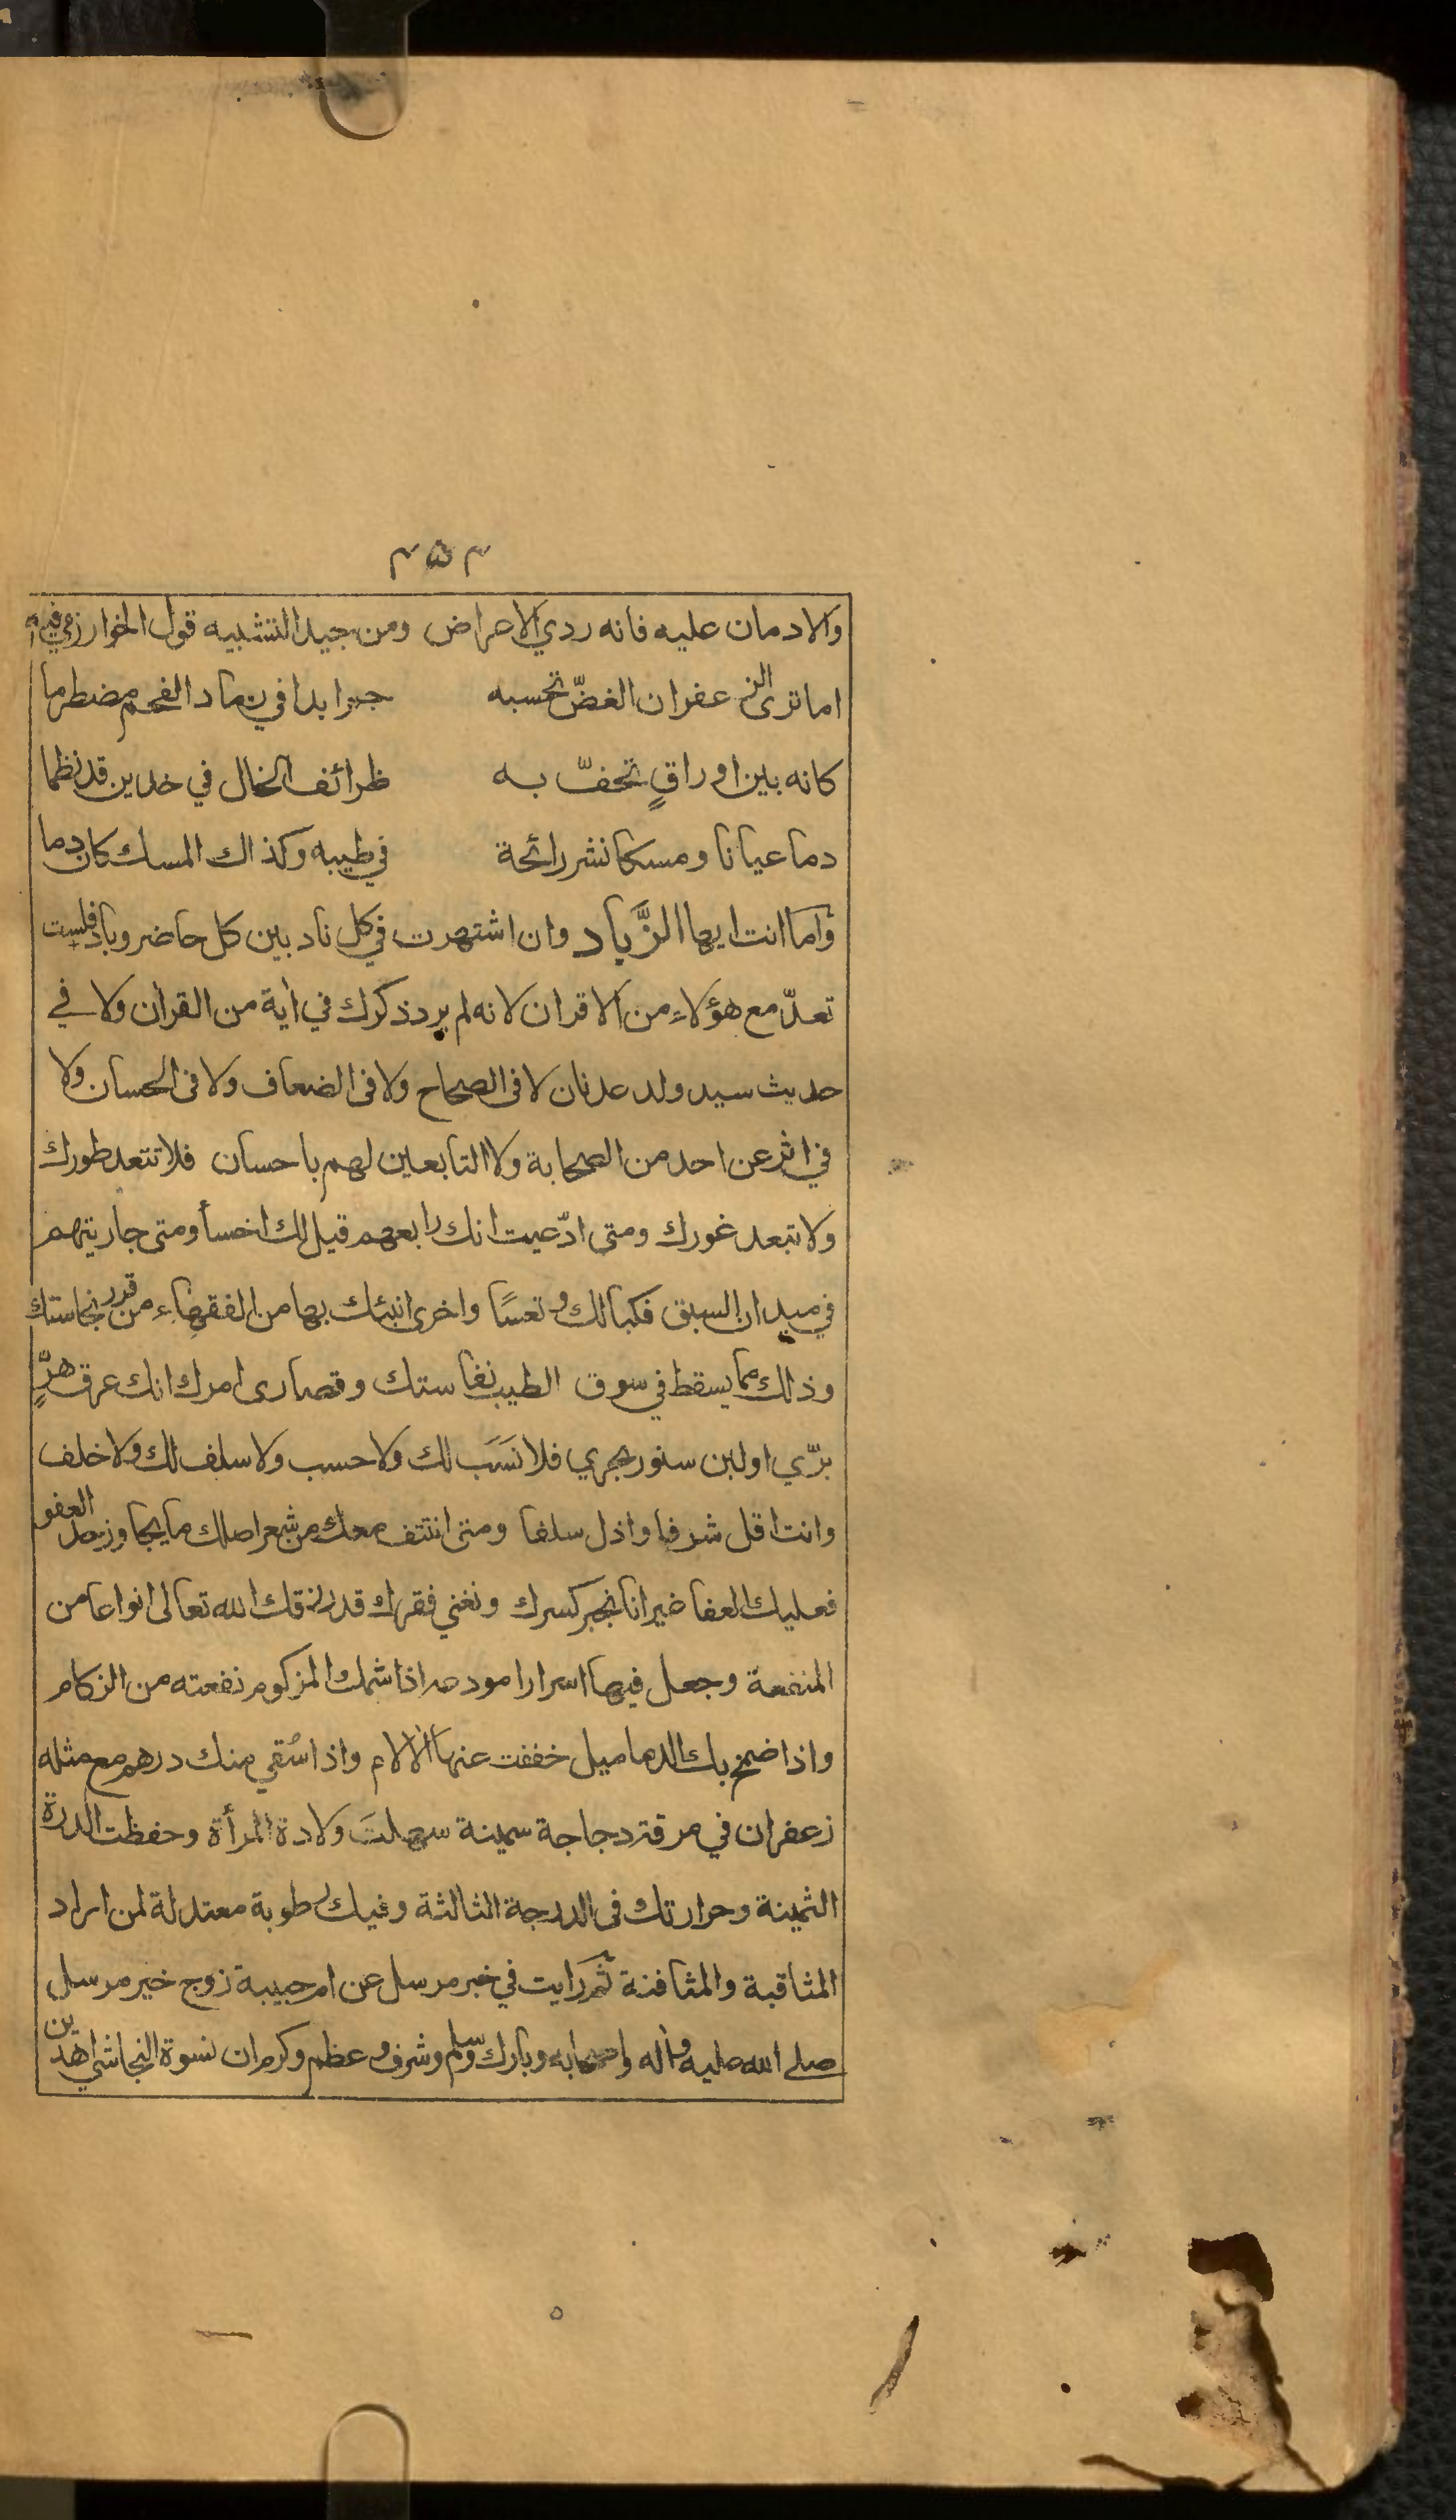 ۴۵۳
والادمان عليه فانه ردي الاعراض ومن جيد التشبيه قول الخوارزمي فيه
اما ترى الزعفران الغضّ تحسبه جمرا بدا في رماد الفحم مضطرما
كانه بين اوراقٍ تحفّ به ظرائف الخال في خدين قد نظما
دما عيانا ومسكا نشر رائحة في طيبه وكذاك المسك كان دما
وأما انت ايها الزَّباد وان اشتهرت في كل ناد بين كل حاضر وباد فلست
تعدّ مع هؤلاء من الاقران لانه لم يرد ذكرك في أية من القرأن ولا في
حديث سيد ولد عدنان لا في الصحاح ولا في الضعاف ولا في الحسان ولا
في اثر عن احد من الصحابة ولا التابعين لهم باحسان فلا تتعد طورك
ولا تبعد غورك ومتى ادّعيت انك رابعهم قيل لك اخسأ ومتى جاريتهم
في ميدان السبق فكبا لك وتعسًا واخرى انبئك بها من الفقهاء من قدر نجاستك
وذلك مما يسقط في سوق الطيب نفاستك وقصارى امرك انك عرق هرٍّ
برّي او لبن سنور بحري فلا نَسَب لك ولا حسب ولا سلف لك ولا خلف
وانت اقل شرفا واذل سلفا ومتى انتتف معك من شعر اصلك ما يجاوز حد العفو
فعليك العفا غير انا نجبر كسرك ونغني فقرك قد رزقك الله تعالى انواعا من
المنفعة وجعل فيها اسرارا مودعه اذا شمك المزكوم نفعته من الزكام
واذا ضمخ بك الدماميل خففت عنها الألام واذا سُقي منك درهم مع مثله
زعفران في مرقة دجاجة سمينة سهلتَ ولادة المرأة وحفظت الدرة
الثمينة وحرارتك في الدرجة الثالثة وفيك رطوبة معتدلة لمن اراد
المثاقبة والمثافنة ثم رايت في خبر مرسل عن ام حبيبة زوج خير مرسل
صلى الله عليه وأله واصحابه وبارك وسلم وشرف وعظم وكرم ان نسوة النجاشي اهدين